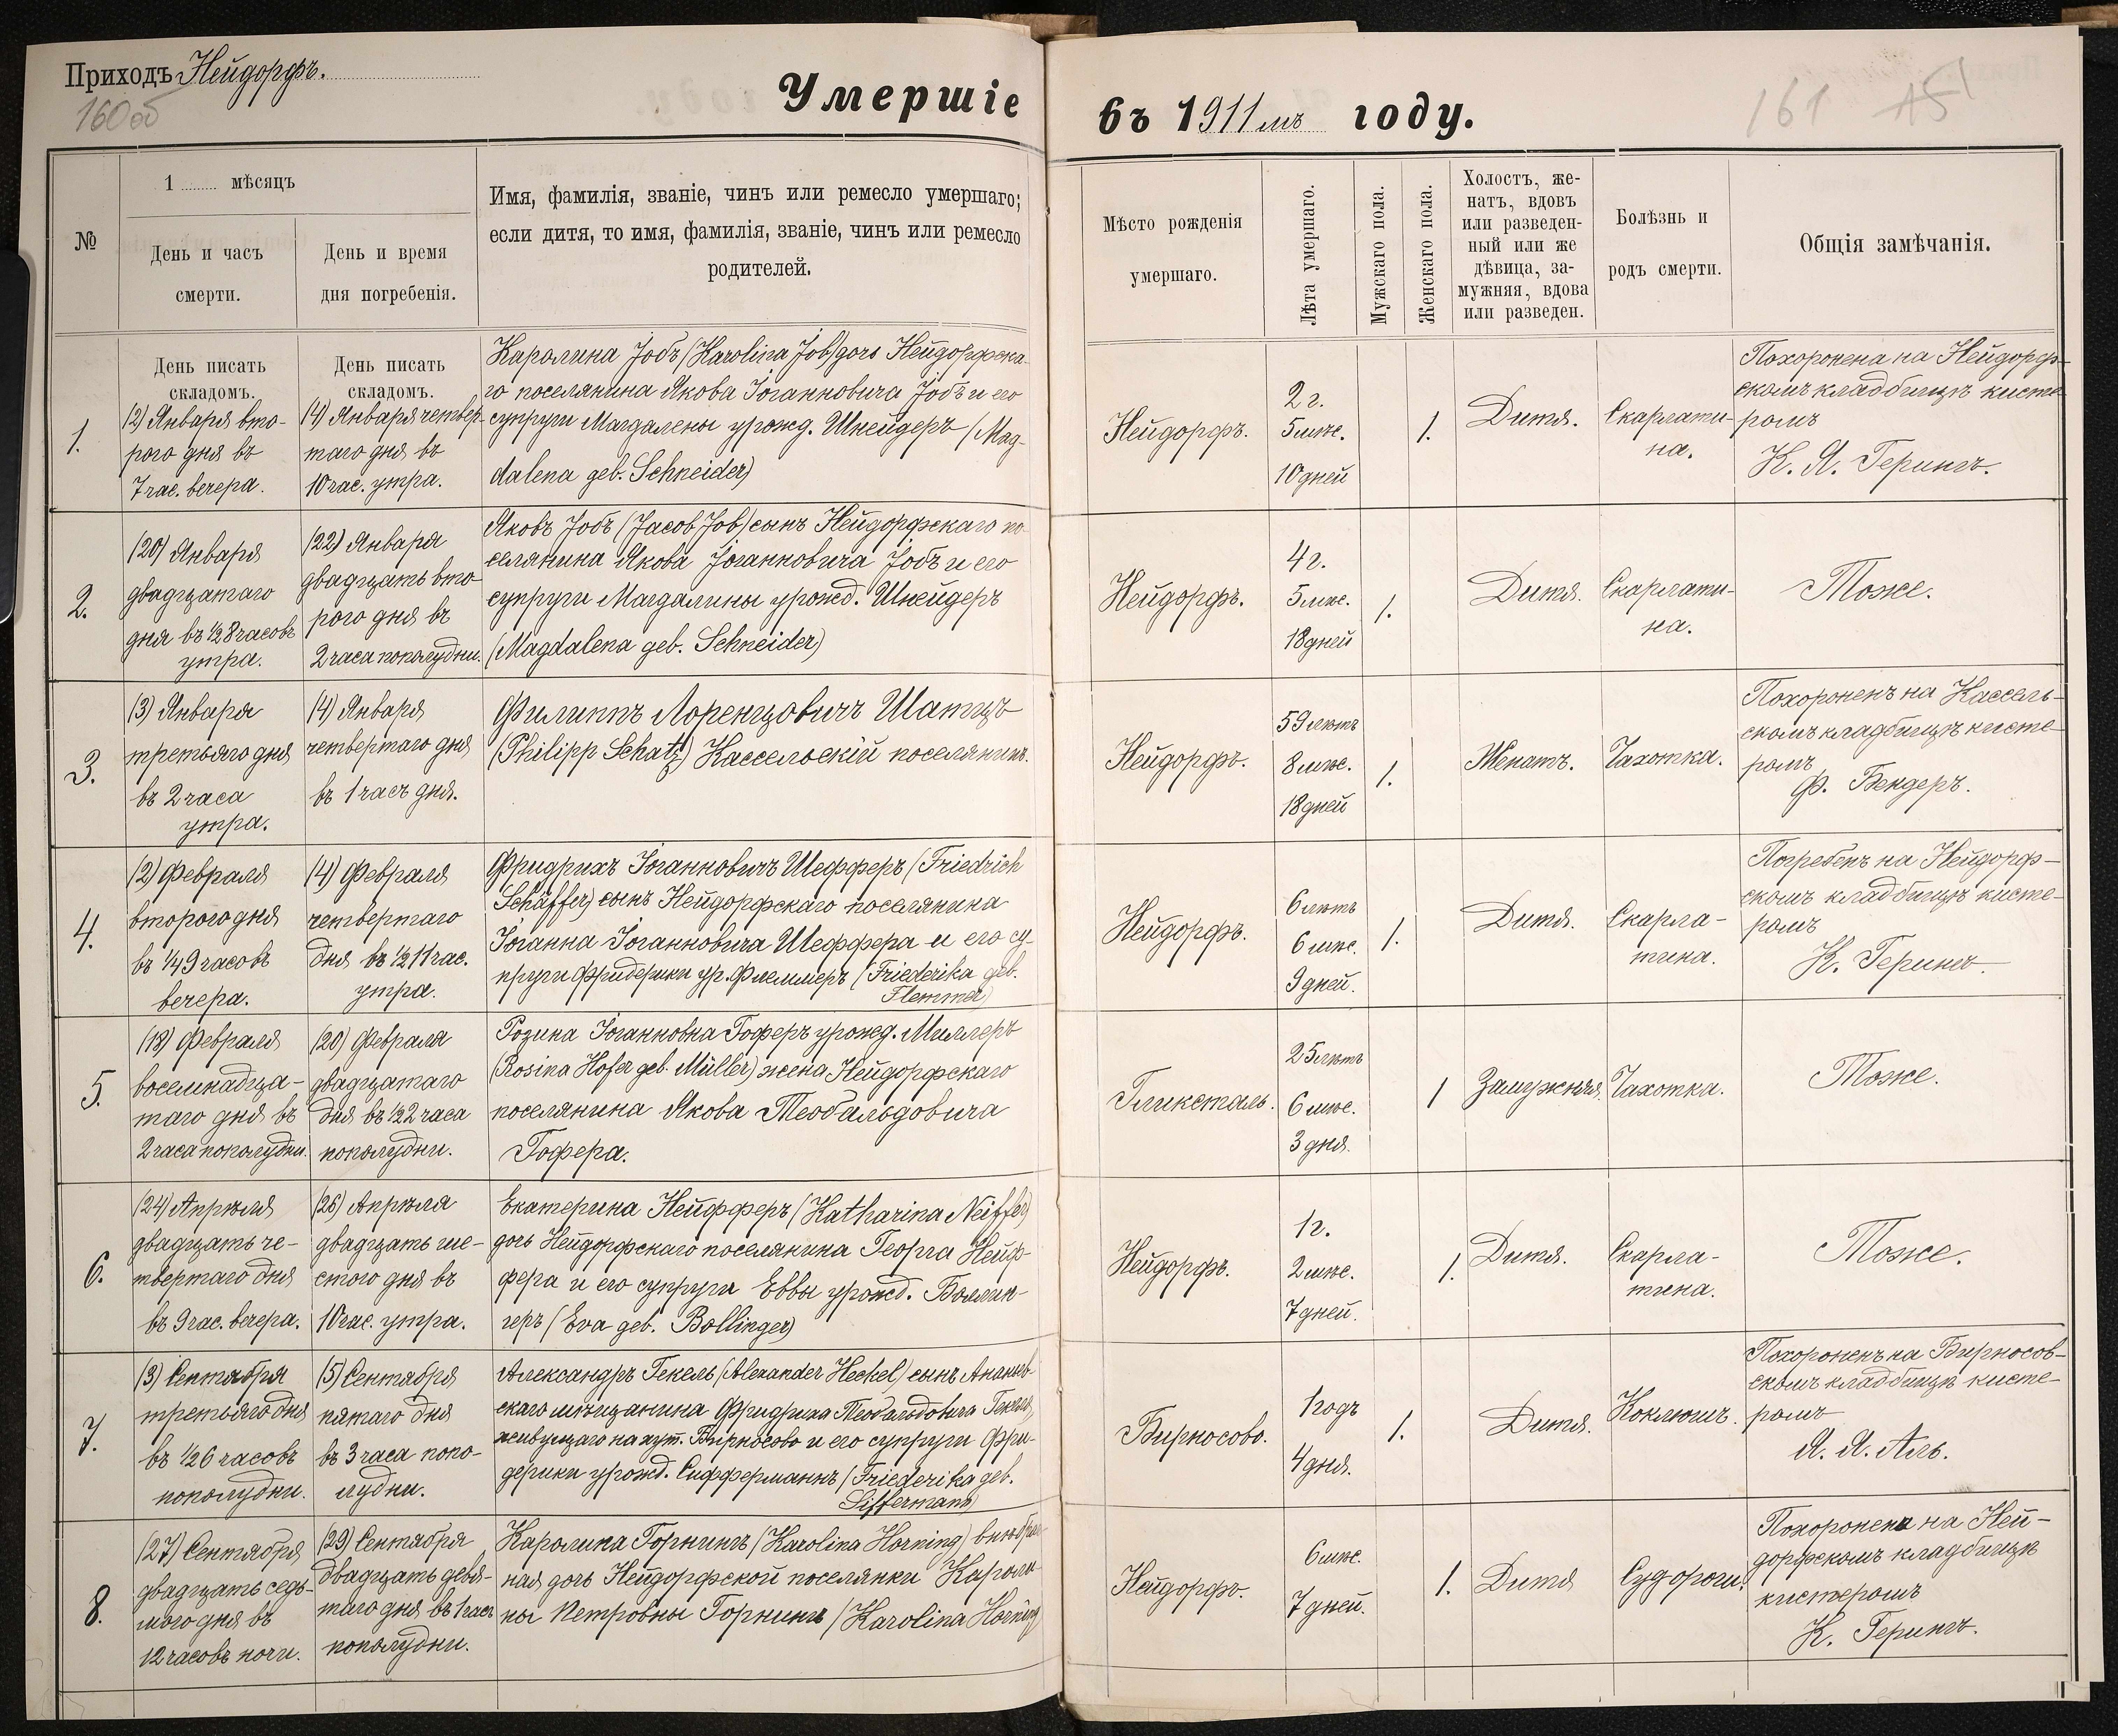 Приходъ Нейдорфъ.
160об
Умершіе
въ 1911 мъ году.
161
151
№
1 ........ мѣсяцъ
День и часъ
смерти.
День и время
дня погребенія.
Имя, фамилія, званіе, чинъ или ремесло умершаго;
если дитя, то имя, фамилія, званіе, чинъ или ремесло
родителей.
Мѣсто рожденія
умершаго.
Лѣта умершаго.
Мужскаго пола.
Женскаго пола.
Холостъ, же-
натъ, вдовъ
или разведен-
ный или же
дѣвица, за-
мужняя, вдова
или разведен.
Болѣзнь и
родъ смерти.
Общія замѣчанія.
День писать
складомъ.
День писать
складомъ.
1.
(2) Января вто-
рого дня въ
7 час. вечера.
(4) Января четвер-
таго дня въ
10 час. утра.
Каролина Јобъ (Karolina Job) дочь Нейдорфска-
го поселянина Якова Іоганновича Јобъ и его
супруги Магдалены урожд. Шнейдеръ (Mag-
dalena geb. Schneider)
Нейдорфъ.
2 г.
5 мѣс.
10 дней
1.
Дитя.
Скарлати-
на.
Похоронена на Нейдорф-
скомъ кладбищѣ кисте-
ромъ
К. Я. Герингъ.
2.
(20) Января
двадцатаго
дня въ 1/2 8 часовъ
утра.
(22) Января
двадцать вто-
рого дня въ
2 часа пополудни.
Яковъ Јобъ (Jacob Job) сынъ Нейдорфскаго по-
селянина Якова Јоганновича Јобъ и его
супруги Магдалины урожд. Шнейдеръ
(Magdalena geb. Schneider)
Нейдорфъ.
4 г.
5 мѣс.
18 дней
1.
Дитя.
Скарлати-
на.
Тоже.
3.
(3) Января
третьяго дня
въ 2 часа
утра.
(4) Января
четвертаго дня
въ 1 часъ дня.
Филиппъ Лоренцовичъ Шатцъ
(Philipp Schatz) Кассельскій поселянинъ.
Нейдорфъ.
59 лѣтъ
8 мѣс.
18 дней
1.
Женатъ.
Чахотка.
Похороненъ на Кассель-
скомъ кладбищѣ кисте-
ромъ
Ф. Бендеръ.
4.
(2) Февраля
второго дня
въ 1/4 9 часовъ
вечера.
(4) Февраля
четвертаго
дня въ 1/2 11 час.
утра.
Фридрихъ Іоганновичъ Шефферъ (Friedrich
Schäffer) сынъ Нейдорфскаго поселянина
Іоганна Іоганновича Шеффера и его су-
пруги Фридерики ур. Флеммеръ (Friederika geb.
Flemmer)
Нейдорфъ.
6 лѣтъ
6 мѣс.
9 дней.
1.
Дитя.
Скарла-
тина.
Погребенъ на Нейдорф-
скомъ кладбищѣ кисте-
ромъ
К. Герингъ.
5.
(18) Февраля
восемнадца-
таго дня въ
2 часа пополудни.
(20) Февраля
двадцатаго
дня въ 1/2 2 часа
пополудни.
Розина Іоганновна Гоферъ урожд. Миллеръ
(Rosina Hofer geb. Müller) жена Нейдорфскаго
поселянина Якова Теобальдовича
Гофера.
Гликсталь.
25 лѣтъ
6 мѣс.
3 дня.
1
Замужняя.
Чахотка.
Тоже.
6.
(24) Апрѣля
двадцать че-
твертаго дня
въ 9 час. вечера.
(26) Апрѣля
двадцать ше-
стого дня въ
10 час. утра.
Екатерина Нейфферъ (Katharina Neiffer)
дочь Нейдорфскаго поселянина Георга Нейф-
фера и его супруги Еввы урожд. Боллин-
геръ (Eva geb. Bollinger)
Нейдорфъ.
1 г.
2 мѣс.
7 дней.
1.
Дитя.
Скарла-
тина.
Тоже.
7.
(3) Сентября
третьяго дня
въ 1/2 6 часовъ
пополудни.
(5) Сентября
пятаго дня
въ 3 часа попо-
лудни.
Александръ Гекель (Alexander Heckel) сынъ Ананьев-
скаго мѣщанина Фридриха Теобальдовича Гекеля,
живущаго на хут. Бирносово и его супруги Фри-
дерики урожд. Сифферманнъ (Friederika geb.
Siffermann)
Бирносово.
1 годъ
4 дня.
1.
Дитя.
Коклюшъ.
Похороненъ на Бирносов-
скомъ кладбищѣ кисте-
ромъ
Я. Я. Аль.
8.
(27) Сентября
двадцать седь-
мого дня въ
12 часовъ ночи.
(29) Сентября
двадцать девя-
таго дня въ 1 часъ
пополудни.
Каролина Горнингъ (Karolina Horning) внѣбрач-
ная дочь Нейдорфской поселянки Кароли-
ны Петровны Горнингъ (Karolina Horning)
Нейдорфъ.
6 мѣс.
7 дней.
1.
Дитя
Судороги.
Похоронена на Ней-
дорфскомъ кладбищѣ
кистеромъ
К. Герингъ.